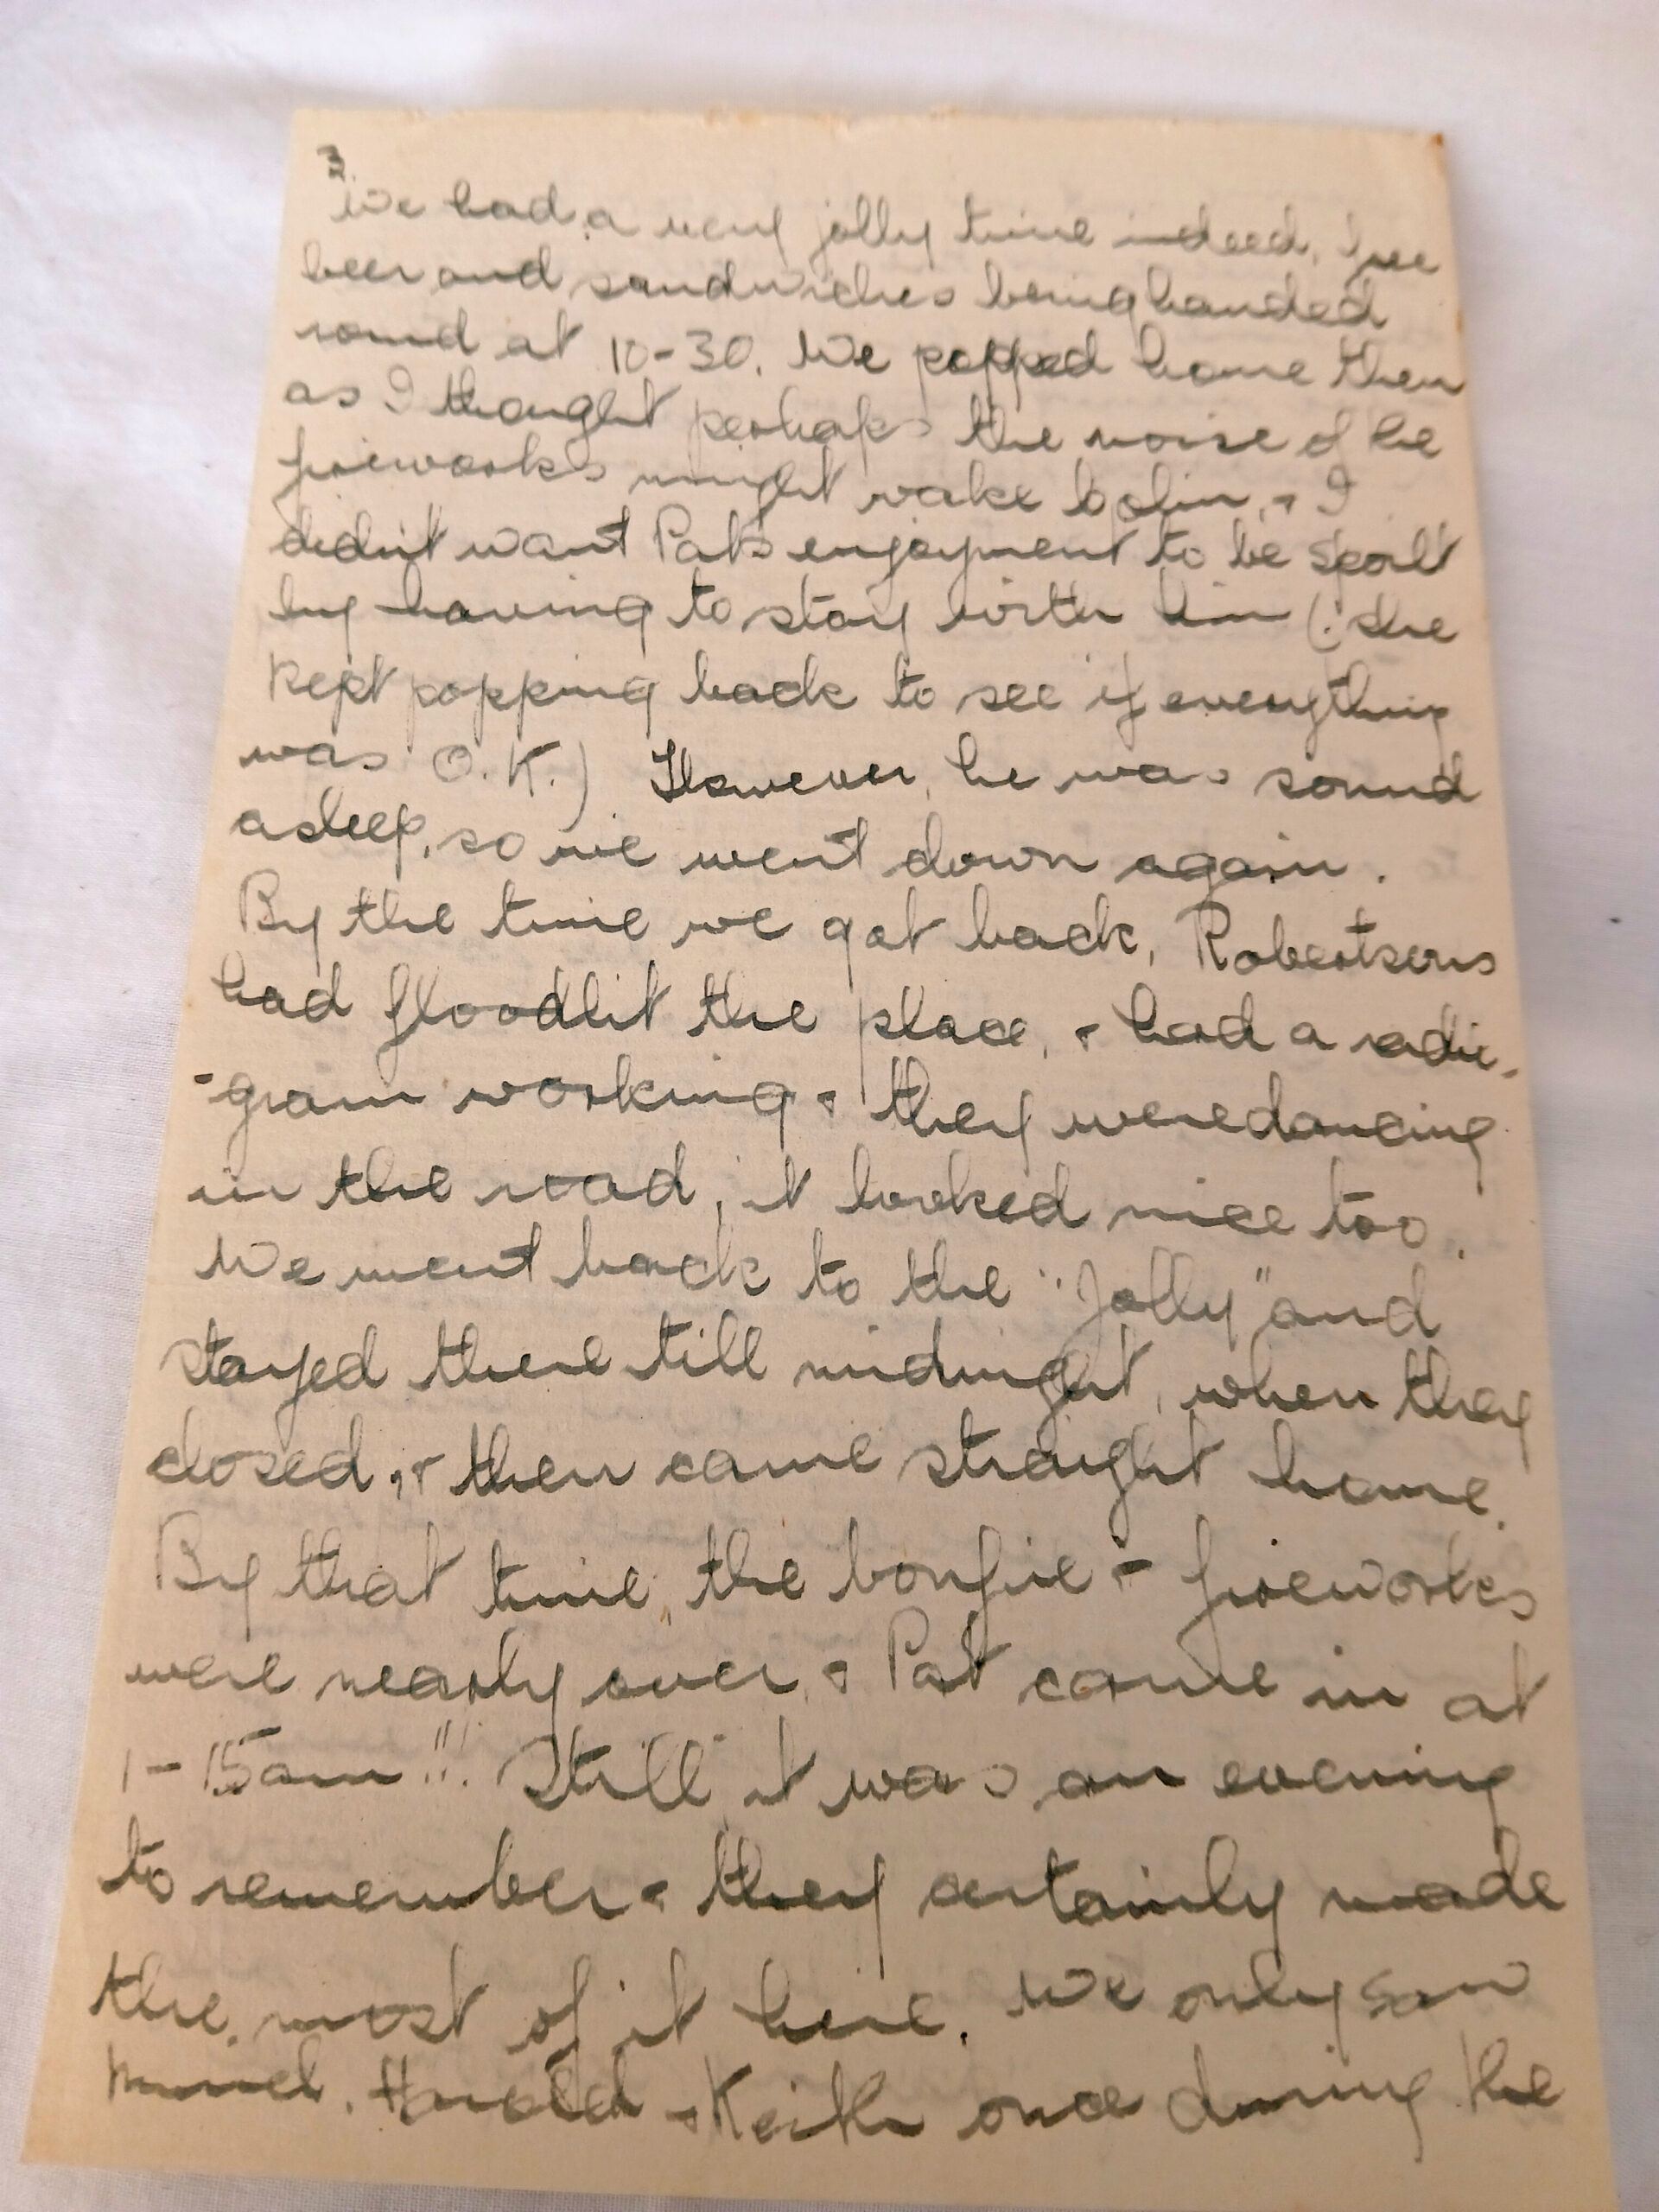 3.
We had a very jolly time indeed, free
beer and sandwiches being handed
round at 10-30. We popped home then
as I thought perhaps the noise of the
fireworks might wake Colin, & I
didn't want Pat's enjoyment to be spoilt
by having to stay with him (: she
kept popping back to see if everything
was O.K.) However, he was sound
asleep, so we went down again.
By the time we got back, Robertsons
had floodlit the place, & had a radio-
-gram working & they were dancing
in the road, it looked nice too.
We went back to the "Jolly" and
stayed there till midnight, when they
closed, & then came straight home.
By that time, the bonfire & fireworks
were nearly over, & Pat came in at
1-15am!!! Still it was an evening
to remember & they certainly made
the most of it here. We only saw
Muriel, Harold & Keith once during the